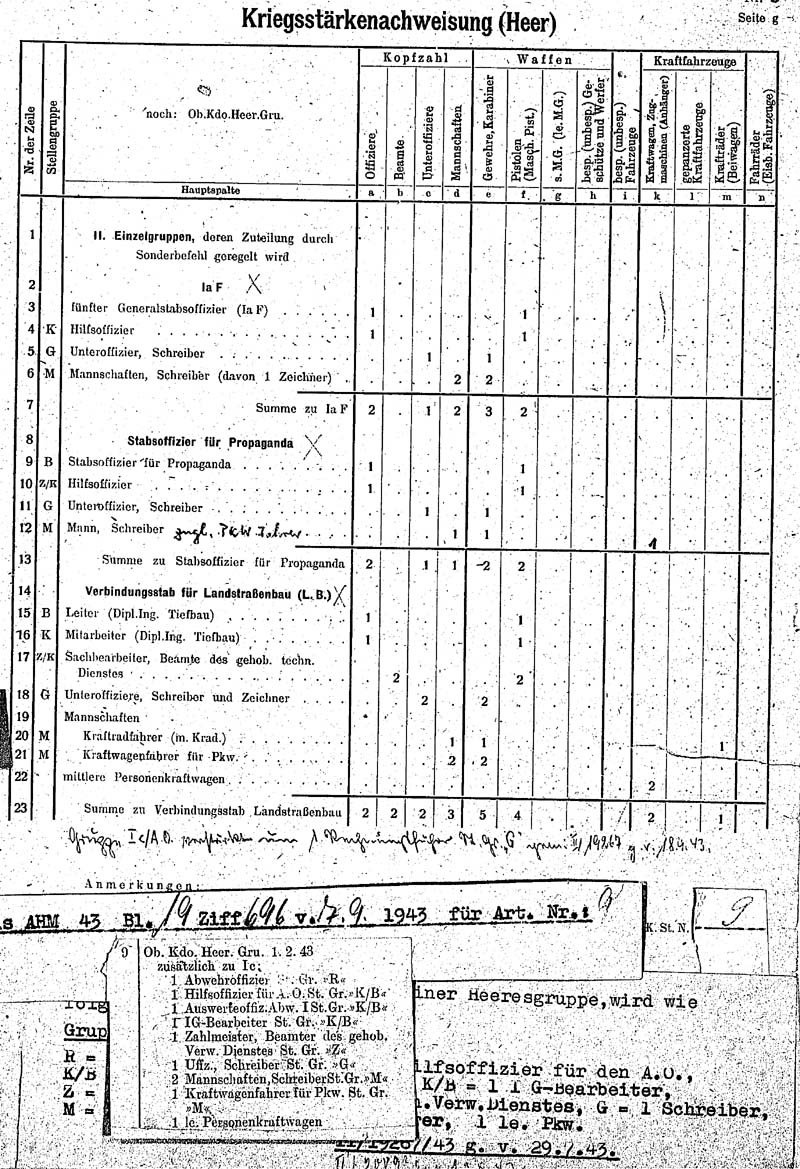 Kriegsstärkenachweisung (Heer)
Seite g
Nr. der Zeile
Stellengruppe
noch: Ob.Kdo.Heer.Gru.
Hauptspalte
Kopfzahl
Waffen
Kraftfahrzeuge
Offiziere
Beamte
Unteroffiziere
Mannschaften
Gewehre, Karabiner
Pistolen (Masch. Pist.)
s. M.G. (le. M.G.)
besp. (unbesp.) Geschütze und Werfer
besp. (unbesp.) Fahrzeuge
Kraftwagen, Zugmaschinen (Anhänger)
gepanzerte Kraftfahrzeuge
Krafträder (Beiwagen)
Fahrräder (Eisb. Fahrzeuge)
a b c d e f g h i k l m n
1 II. Einzelgruppen, deren Zuteilung durch
Sonderbefehl geregelt wird
2 Ia F X
3 fünfter Generalstabsoffizier (Ia F) 1 1
4 K Hilfsoffizier 1 1
5 G Unteroffizier, Schreiber 1 1
6 M Mannschaften, Schreiber (davon 1 Zeichner) 2 2
7 Summe zu Ia F 2 1 2 3 2
8 Stabsoffizier für Propaganda X
9 B Stabsoffizier für Propaganda 1 1
10 Z/K Hilfsoffizier 1 1
11 G Unteroffizier, Schreiber 1 1
12 M Mann, Schreiber zugl. PKW Fahrer 1 1 1
13 Summe zu Stabsoffizier für Propaganda 2 1 1 2 2
14 Verbindungsstab für Landstraßenbau (L.B.) X
15 B Leiter (Dipl.Ing. Tiefbau) 1 1
16 K Mitarbeiter (Dipl.Ing. Tiefbau) 1 1
17 Z/K Sachbearbeiter, Beamte des gehob. techn.
Dienstes 2 2
18 G Unteroffiziere, Schreiber und Zeichner 2 2
19 Mannschaften
20 M Kraftradfahrer (m. Krad.) 1 1 1
21 M Kraftwagenfahrer für Pkw. 2 2
22 mittlere Personenkraftwagen 2
23 Summe zu Verbindungsstab Landstraßenbau 2 2 2 3 5 4 2 1
Gruppe Ic/A.O. verstärkt um 1 Rechnungsführer St. Gr. „G“ gem. 18.9.43.
Anmerkungen:
s AHM 43 Bl. 19 Ziff 696 v. 17.9. 1943 für Art. Nr.: 9
K. St. N. 9
9 Ob. Kdo. Heer. Gru. 1. 2. 43
zusätzlich zu Ic:
1 Abwehroffizier St. Gr. »R«
1 Hilfsoffizier für A. O. St. Gr. »K/B«
1 Auswerteoffiz. Abw. I St. Gr. »K/B«
1 IG-Bearbeiter St. Gr. »K/B«
1 Zahlmeister, Beamter des gehob.
Verw. Dienstes St. Gr. »Z«
1 Uffz., Schreiber St. Gr. »G«
2 Mannschaften, Schreiber St. Gr. »M«
1 Kraftwagenfahrer für Pkw. St. Gr.
»M«
1 le. Personenkraftwagen
iner Heeresgruppe, wird wie
folg
Grup
R =
K/B
Z =
M =
ilfsoffizier für den A.O.,
K/B = 1 I G-Bearbeiter,
.Verw.Dienstes, G = 1 Schreiber,
er, 1 le. Pkw.
g. v. 29.7.43.